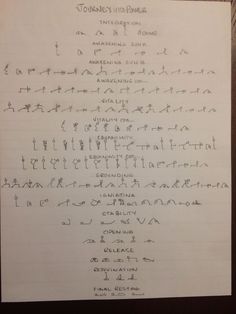 JOURNEY INTO POWER
INTEGRATION
AWAKENING SUN A
AWAKENING SUN B
AWAKENING
VITALITY
VITALITY
EQUANIMITY
EQUANIMITY
GROUNDING
IGNITING
STABILITY
OPENING
RELEASE
REJUVINATION
FINAL RESTING